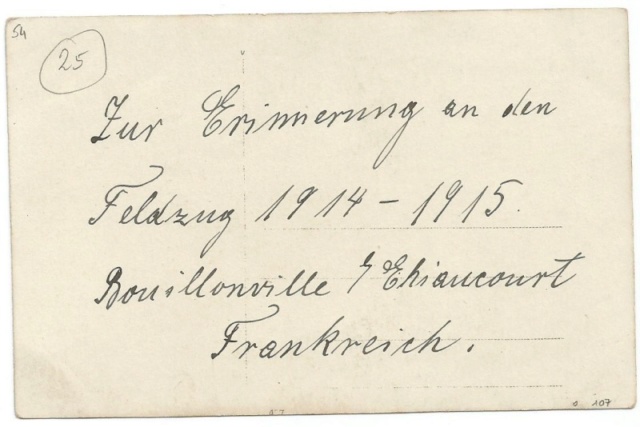 54
25
Zur Erinnerung an den
Feldzug 1914 – 1915.
Bouillonville / Thiaucourt
Frankreich.
107